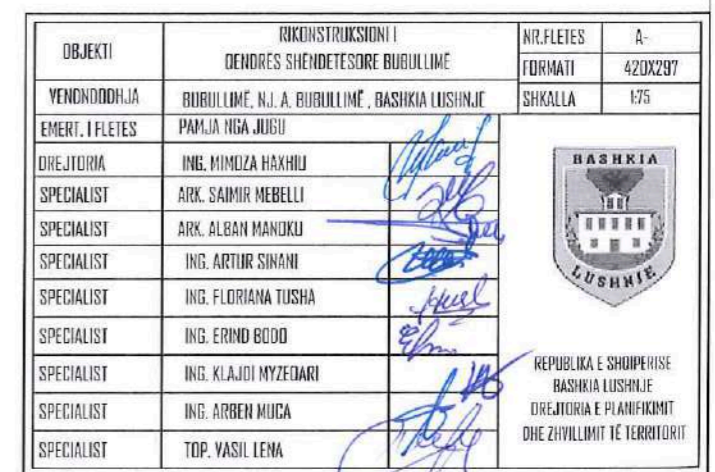 OBJEKTI
RIKONSTRUKSIONI I
QENDRES SHËNDETËSORE BUBULLIMË
NR.FLETES A-
FORMATI 420X297
VENDNDODHJA BUBULLIMË, NJ. A. BUBULLIMË , BASHKIA LUSHNJE SHKALLA 1:75
EMERT. I FLETES PAMJA NGA JUGU
DREJTORIA ING. MIMOZA HAXHIU
SPECIALIST ARK. SAIMIR MEBELLI
SPECIALIST ARK. ALBAN MANOKU
SPECIALIST ING. ARTUR SINANI
SPECIALIST ING. FLORIANA TUSHA
SPECIALIST ING. ERIND BODO
SPECIALIST ING. KLAJDI MYZEQARI
SPECIALIST ING. ARBEN MUCA
SPECIALIST TOP. VASIL LENA
BASHKIA
LUSHNJE
REPUBLIKA E SHQIPERISE
BASHKIA LUSHNJE
DREJTORIA E PLANIFIKIMIT
DHE ZHVILLIMIT TË TERRITORIT